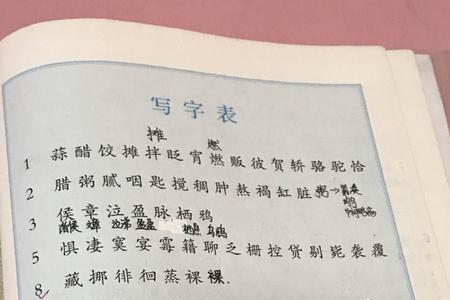 写字表
摊 燃
1 蒜醋饺摊拌眨宵燃贩彼贺轿骆驼恰
2 腊粥腻咽匙搅稠肿熬褐缸脏 粥→
3 侯章泣盈脉栖鸦
5 惧凄寞宴霉籍聊乏栅控贷剔毙袭覆
8 藏挪徘徊蒸裸裸.